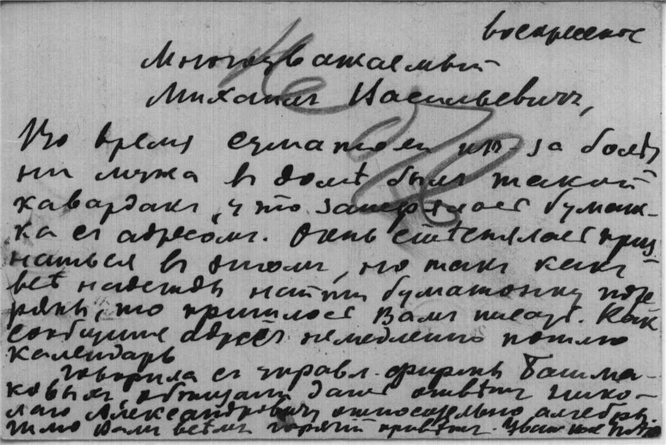 воскресенье
Многоуважаемый
Михаилъ Васильевичъ,
Во время суматохи из-за болѣз
ни мужа в домѣ былъ такой
кавардакъ, что затерялась бумаж-
ка съ адресомъ. Очень стѣснялась приз
наться в этомъ, но такъ какъ
всѣ надежды найти бумажонку поте
ряны, то пришлось Вамъ писать. Какъ
сообщите адресъ немедленно пошлю
календарь
Говорила съ управл. фирмы Башма-
ковыхъ, обѣщали дать отвѣтъ Нико-
лаю Александровичу относительно алгебры.
Шлю Вамъ всѣмъ горячій привѣтъ.